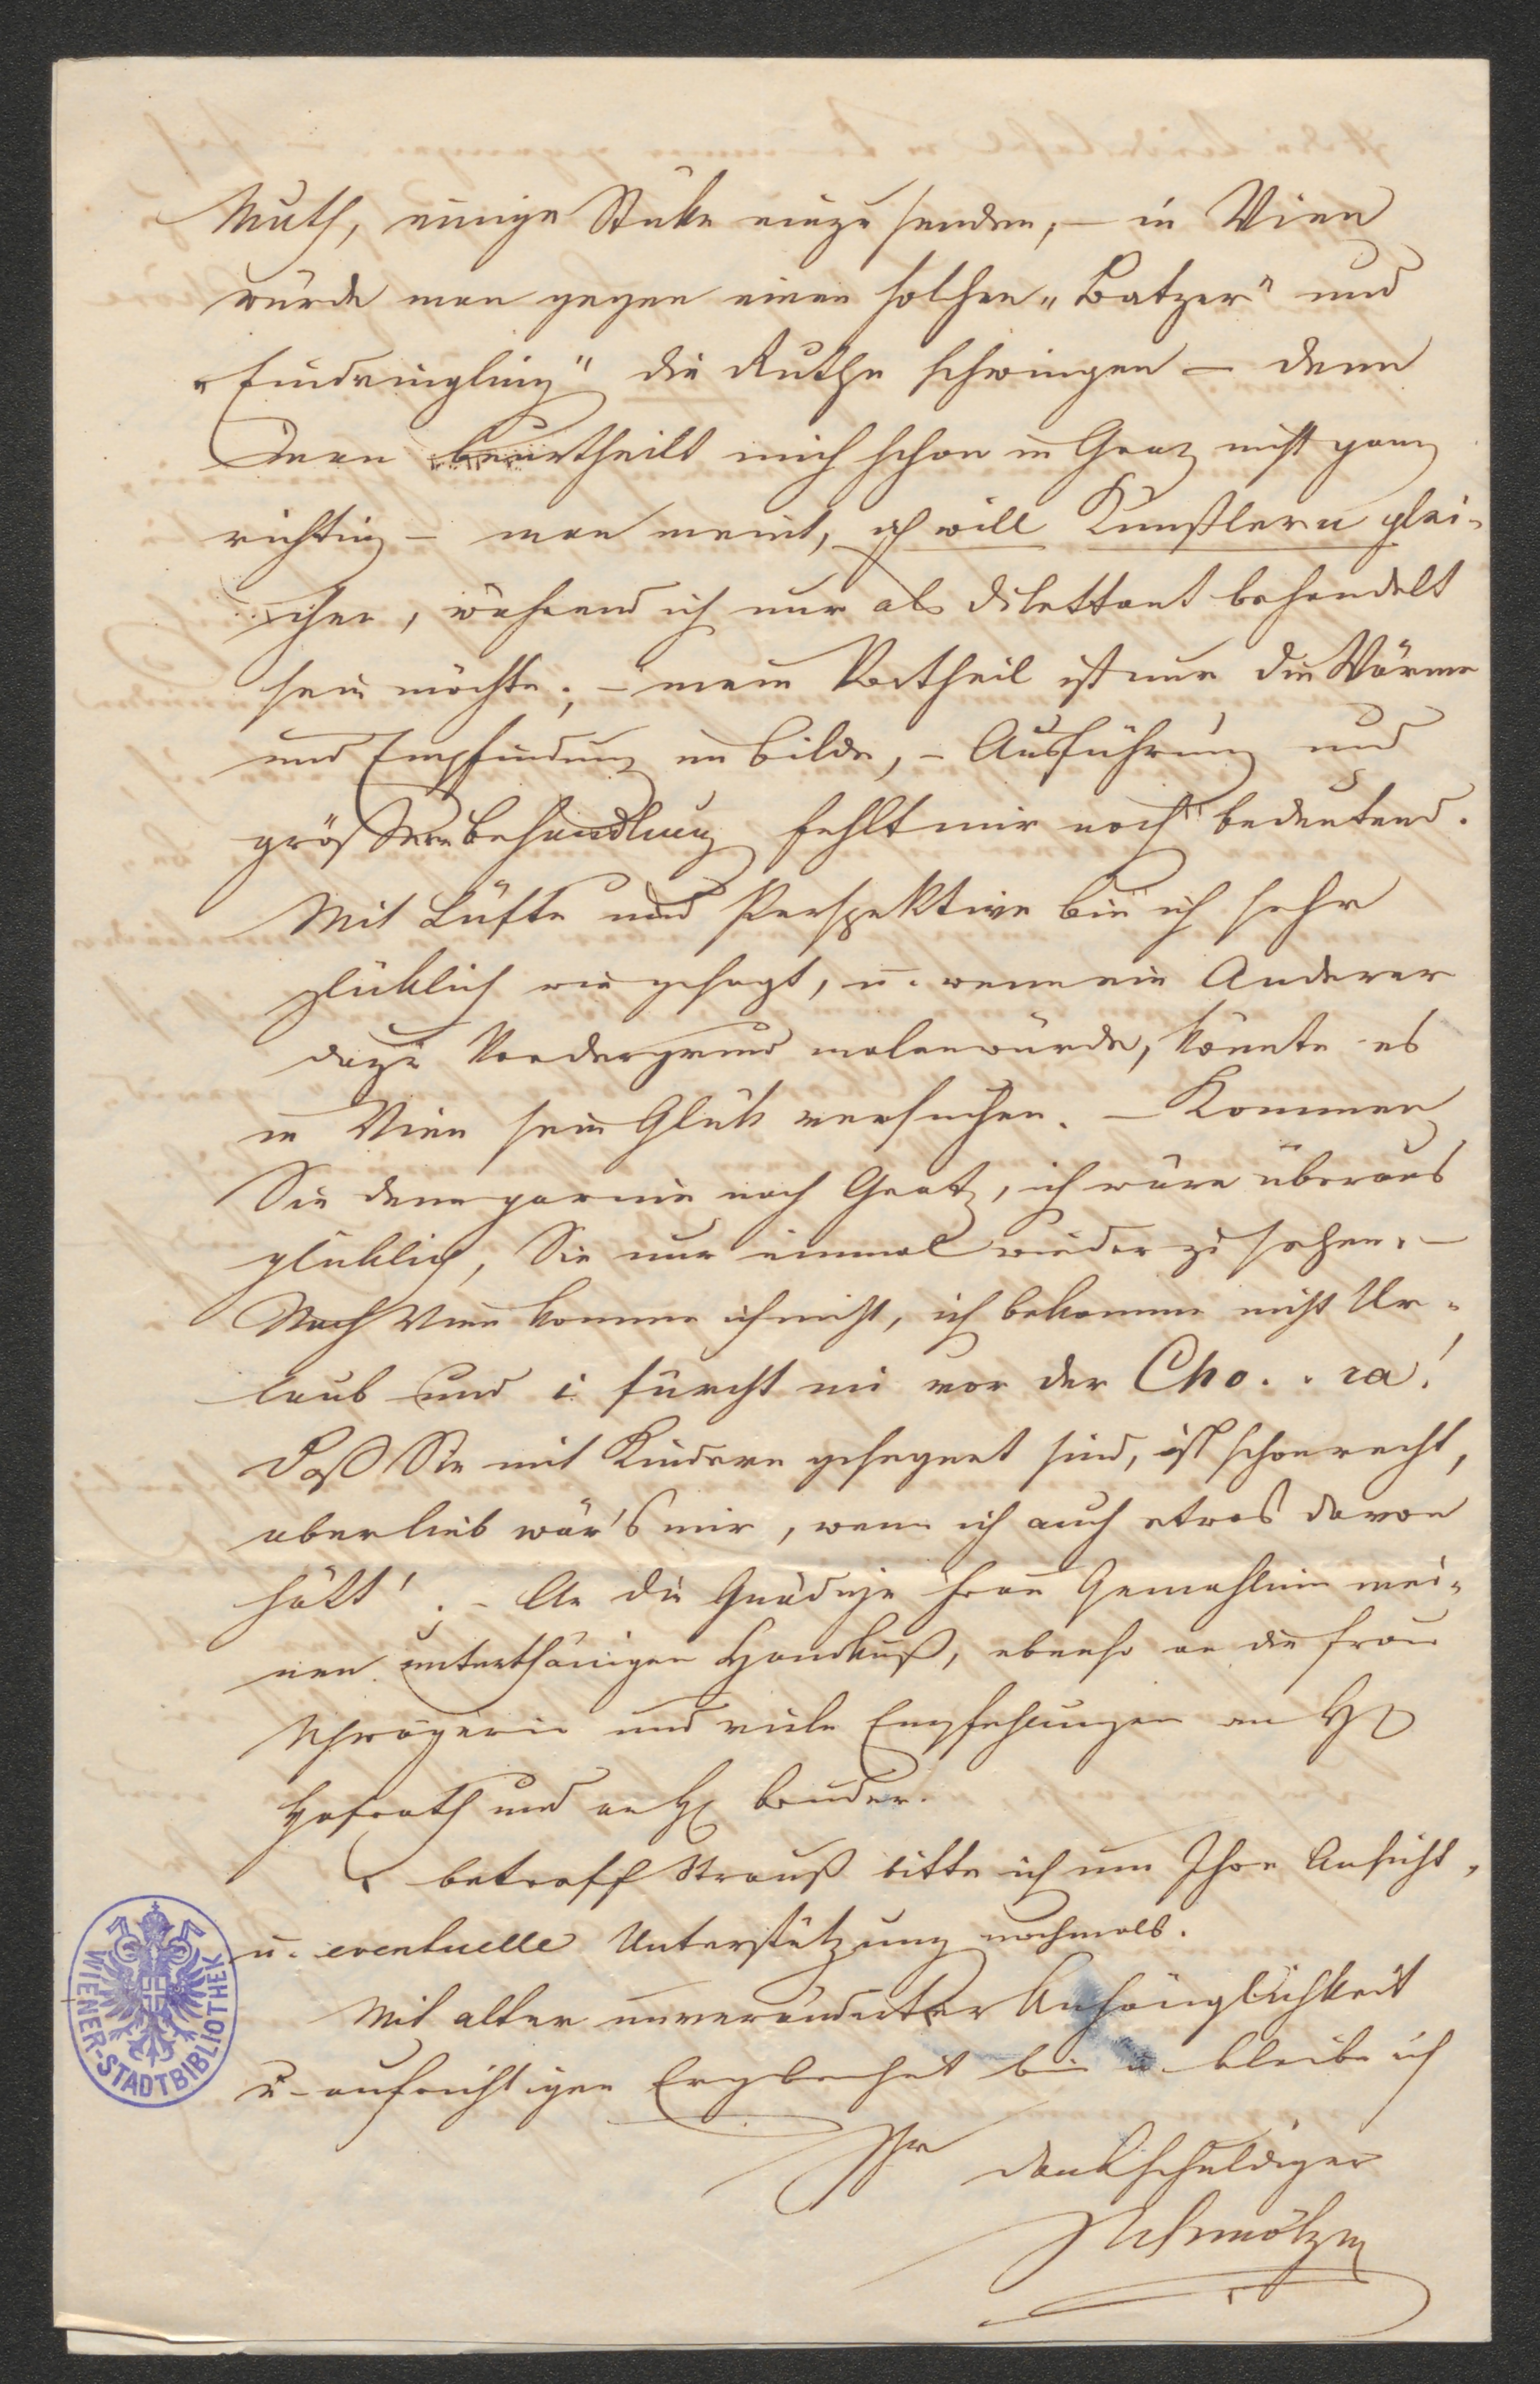 Muth, einige Stüke einzusenden, – in Wien
würde man gegen einen solchen „Batzer" und
„Eindringling" die Ruthe schwingen – denn
man beurtheilt mich schon in Graz nicht ganz
richtig – man meint, ich will Künstlern glei-
chen, während ich nur als Dilettant behandelt
sein möchte; – mein Vortheil ist nur die Wärme
und Empfindung im Bilde, – Ausführung und
größere Behandlung fehlt mir noch bedeutend.
Mit Lüfte und Perspektive bin ich sehr
glüklich wie gesagt, u. wenn ein Anderer
dazu Vordergrund malen würde, könnte es
in Wien sein Glük versuchen. – Kommen
Sie denn gar nie nach Gratz, ich wäre überaus
glüklich, Sie nur einmal wieder zu sehen. –
Nach Wien komme ich nicht, ich bekomme nicht Ur-
laub und i fürcht mi vor der Cho . . ra!
Daß Sie mit Kindern gesegnet sind, ist schon recht,
aber lieb wär's mir, wenn ich auch etwas davon
hätt'. – An die Gnädige Frau Gemahlin mei-
nen unterthänigen Handkuß, ebenso an die Frau
Schwägerin und viele Empfehlungen an H
Hofrath und an H Bruder.
betreff Strauß bitte ich um Ihre Ansicht,
u. eventuelle Unterstützung nochmals.
Mit alter unveränderter Anhänglichkeit
u. aufrichtigen Ergebenheit bin u. bleibe ich
Ihr dankschuldiger
Schmölzer
WIENER-STADTBIBLIOTHEK